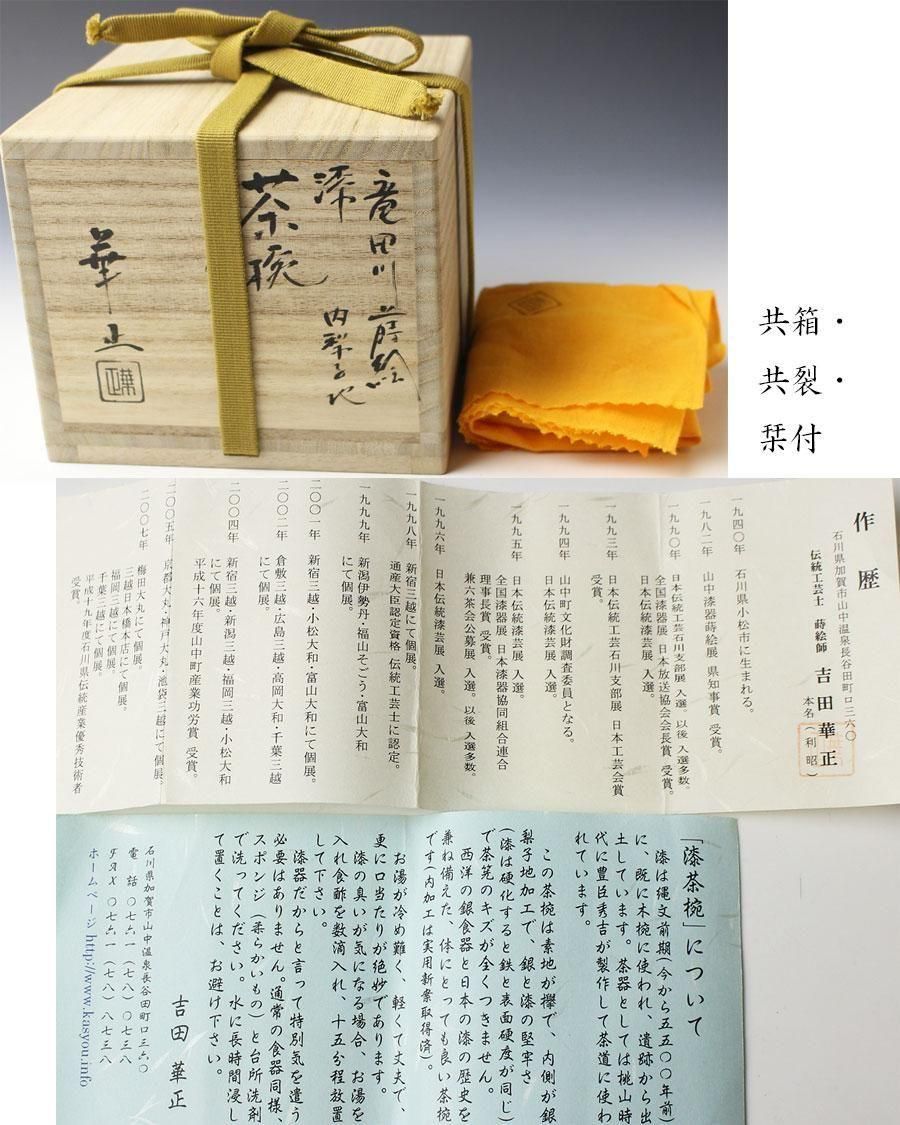 竜田川蒔絵
内梨子地
漆
茶碗
華正
共箱・
共裂・
栞付
作歴
石川県加賀市山中温泉長谷田町ロ三六〇
伝統工芸士 蒔絵師 吉田華正
本名(利昭)
一九四〇年 石川県小松市に生まれる。
一九八二年 山中漆器蒔絵展 県知事賞 受賞。
一九九〇年 日本伝統工芸石川支部展 入選。以後 入選多数。
全国漆器展 日本放送協会会長賞 受賞。
日本伝統漆芸展 入選。
一九九三年 日本伝統工芸石川支部展 日本工芸会賞
受賞。
一九九四年 山中町文化財調査委員となる。
日本伝統漆芸展 入選。
一九九五年 日本伝統漆芸展 入選。
全国漆器展 日本漆器協同組合連合
理事長賞 受賞。
兼六茶会公募展 入選。以後 入選多数。
一九九六年 日本伝統漆芸展 入選。
一九九八年 新宿三越にて個展。
通産大臣認定資格 伝統工芸士に認定。
一九九九年 新潟伊勢丹・福山そごう・富山大和
にて個展。
二〇〇一年 新宿三越・小松大和・富山大和にて個展。
二〇〇二年 倉敷三越・広島三越・高岡大和・千葉三越
にて個展。
二〇〇四年 新宿三越・新潟三越・福岡三越・小松大和
にて個展。
平成十六年度山中町産業功労賞 受賞。
二〇〇五年 京都大丸・神戸大丸・池袋三越にて個展。
二〇〇七年 梅田大丸にて個展。
三越日本橋本店にて個展。
福岡三越にて個展。
千葉三越にて個展。
平成十九年度石川県伝統産業優秀技術者
受賞。
「漆茶椀」について
漆は縄文前期(今から五五〇〇年前)
に、既に木椀に使われ、遺跡から出
土しています。茶器としては桃山時
代に豊臣秀吉が製作して茶道に使わ
れています。
この茶椀は素地が欅で、内側が銀
梨子地加工で、銀と漆の堅牢さ
(漆は硬化すると鉄と表面硬度が同じ)
で茶筅のキズが全くつきません。
西洋の銀食器と日本の漆の歴史を
兼ね備えた、体にとっても良い茶椀
です(内加工は実用新案取得済)。
お湯が冷め難く、軽くて丈夫で、
更に口当たりが絶妙であります。
漆の臭いが気になる場合、お湯を
入れ食酢を数滴入れ、十五分程放置
して下さい。
漆器だからと言って特別気を遣う
必要はありません。通常の食器同様、
スポンジ(柔らかいもの)と台所洗剤
で洗ってください。水に長時間浸し
て置くことは、お避け下さい。
吉田 華正
石川県加賀市山中温泉長谷田町ロ三六〇
電話 〇七六一(七八)〇七三八
FAX 〇七六一(七八)八七三八
ホームページ http://www.kasyou.info